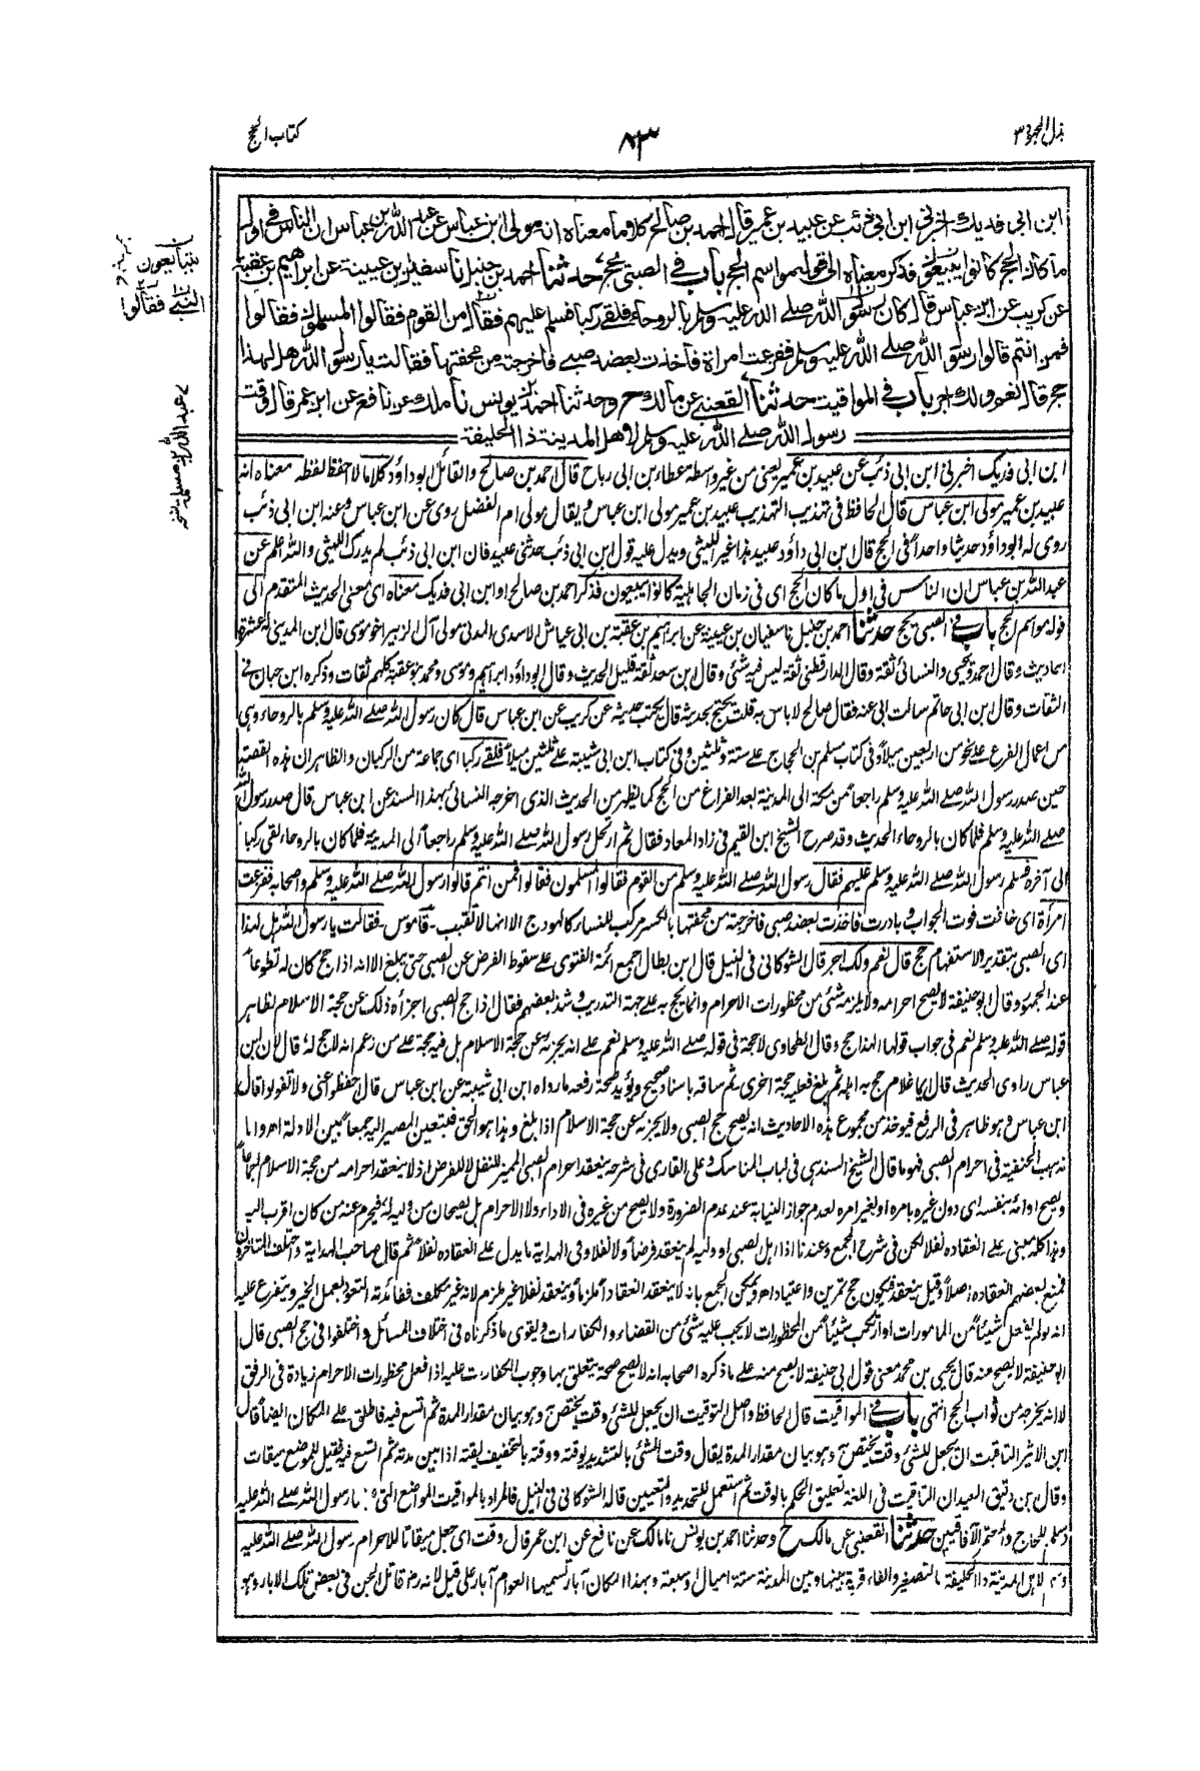 بذل المجهود ٣
٨٣
كتاب الحج
ابن ابى فديك اخبرنى ابن ابى ذئب عن عبيد بن عمير قال احمد بن صالح كلاما معناه انه مولى ابن عباس عن عبد الله بن عباس ان الناس فى اول
ما كان الحج كانوا يبيعون فذكر معناه الى قوله مواسم الحج باب فى الصبى يحج حدثنا احمد بن حنبل نا سفين بن عيينة عن ابراهيم بن عقبة
عن كريب عن ابن عباس قال كان رسول الله صلے الله عليه وسلم بالروحاء فلقى ركبا فسلم عليهم فقال من القوم فقالوا المسلمون فقالوا
فمن انتم قالوا رسول الله صلے الله عليه وسلم ففزعت امرأة فاخذت بعضد صبى فاخرجته من محفتها فقالت يا رسول الله هل لهذا
حج قال نعم ولك اجر باب فى المواقيت حدثنا القعنبى عن مالك ح وحدثنا احمد بن يونس نا ملك عن نافع عن ابن عمر قال وقت
رسول الله صلے الله عليه وسلم لاهل المدينة ذا الحليفة
يتبايعون
النبى
فقالوا
عبد الله بن مسلمة
ابن ابى فديك اخبرنى ابن ابى ذئب عن عبيد بن عمير يعنى من غير واسطة عطاء بن ابى رباح قال احمد بن صالح والقائل ابوداؤد كلاما لا احفظ لفظه معناه انه
عبيد بن عمير مولى ابن عباس قال الحافظ فى تهذيب التهذيب عبيد بن عمير مولى ابن عباس ويقال مولى ام الفضل روى عن ابن عباس وعنه ابن ابى ذئب
روى له ابوداؤد حديثا واحداً فى الحج قال ابن ابى داؤد عبيد هذا غير الليثى ويدل عليه قول ابن ابى ذئب حدثنى عبيد فان ابن ابى ذئب لم يدرك الليثى والله اعلم عن
عبد الله بن عباس ان الناس فى اول ما كان الحج اى فى زمان الجاهلية كانوا يبيعون فذكر احمد بن صالح او ابن ابى فديك معناه اى معنى الحديث المتقدم الى
قوله مواسم الحج باب فى الصبى يحج حدثنا احمد بن حنبل نا سفيان بن عيينة عن ابراهيم بن عقبة بن ابى عياش الاسدى المدنى مولى آل الزبير اخو موسى قال ابن المدينى له عشرة
احاديث وقال احمد ويحيى والنسائى ثقة وقال الدارقطنى ثقة ليس فيه شئ وقال ابن سعد ثقة قليل الحديث وقال ابوداؤد ابراهيم وموسى ومحمد بنو عقبة كلهم ثقات وذكره ابن حبان فى
الثقات وقال ابن ابى حاتم سالت ابى عنه فقال صالح لا باس به قلت يحتج بحديثه قال يكتب حديثه عن كريب عن ابن عباس قال كان رسول الله صلے الله عليه وسلم بالروحاء وهى
من اعمال الفرع على نحو من اربعين ميلاً وفى كتاب مسلم بن الحجاج على ستة وثلثين وفى كتاب ابن ابى شيبة على ثلثين ميلاً فلقى ركبا اى جماعة من الركبان والظاهر ان هذه القصة
حين صدر رسول الله صلے الله عليه وسلم راجعاً من مكة الى المدينة بعد الفراغ من الحج كما يظهر من الحديث الذى اخرجه النسائى بهذا السند عن ابن عباس قال صدر رسول الله
صلے الله عليه وسلم فلما كان بالروحاء الحديث وقد صرح الشيخ ابن القيم فى زاد المعاد فقال ثم ارتحل رسول الله صلے الله عليه وسلم راجعاً الى المدينة فلما كان بالروحاء لقى ركبا
الى آخره فسلم رسول الله صلے الله عليه وسلم عليهم فقال رسول الله صلے الله عليه وسلم من القوم فقالوا المسلمون فقالوا فمن انتم قالوا رسول الله صلے الله عليه وسلم واصحابه ففزعت
امرأة اى خافت فوت الجواب وبادرت فاخذت بعضد صبى فاخرجته من محفتها بالكسر مركب للنساء كالهودج الا انها لا تقبب - قاموس - فقالت يا رسول الله هل لهذا
اى الصبى بتقدير الاستفهام حج قال نعم ولك اجر قال الشوكانى فى النيل قال ابن بطال اجمع ائمة الفتوى على سقوط الفرض عن الصبى حتى يبلغ الا انه اذا حج كان له تطوعاً
عند الجمهور وقال ابوحنيفة لا يصح احرامه ولا يلزمه شئ من محظورات الاحرام وانما يحج به على جهة التدريب وشذ بعضهم فقال اذا حج الصبى اجزأه ذلك عن حجة الاسلام لظاهر
قوله صلے الله عليه وسلم نعم فى جواب قولها الهذا حج وقال الطحاوى لا حجة فى قوله صلے الله عليه وسلم نعم على انه يجزئه عن حجة الاسلام بل فيه حجة على من زعم انه لا حج له قال لان ابن
عباس راوى الحديث قال ايما غلام حج به اهله ثم بلغ فعليه حجة اخرى ثم ساقه باسناد صحيح ويؤيد صحة رفعه ما رواه ابن ابى شيبة عن ابن عباس قال احفظوا عنى ولا تقولوا قال
ابن عباس وهو ظاهر فى الرفع فيوخذ من مجموع هذه الاحاديث انه يصح حج الصبى ولا يجزئه عن حجة الاسلام اذا بلغ وهذا هو الحق فيتعين المصير اليه جمعاً بين الادلة اهـ واما
مذهب الحنفية فى احرام الصبى فهو ما قال الشيخ السندى فى لباب المناسك وعلى القارى فى شرحه ينعقد احرام الصبى المميز للنفل لا للفرض اذ لا ينعقد احرامه من حجة الاسلام اجماعاً
ويصح اداءه بنفسه اى دون غيره بامره او بغير امره لعدم جواز النيابة عند عدم الضرورة ولا يصح من غيره فى الاداء ولا الاحرام بل يصحان من وليه له فيحرم عنه من كان اقرب اليه
وهذا كله مبنى على انعقاده نفلا لكن فى شرح المجمع وعندنا اذا اهل الصبى او وليه لم ينعقد فرضاً ولا نفلا وفى الهداية ما يدل على انعقاده نفلاً ثم قال صاحب الهداية واختلف المتأخرون
فمنع بعضهم انعقاده اصلاً وقيل ينعقد فيكون حج تمرين واعتياد اهـ ويمكن الجمع بانه لا ينعقد انعقاداً ملزماً وينعقد نفلا غير ملزم لانه غير مكلف ففائدته التعود بعمل الخير ويتفرع عليه
انه لو لم يفعل شيئاً من المامورات او ارتكب شيئاً من المحظورات لا يجب عليه شئ من القضاء والكفارات ويقوى ما ذكرناه فى اختلاف المسائل واختلفوا فى حج الصبى قال
ابوحنيفة لا يصح منه قال يحيى بن محمد معنى قول ابى حنيفة لا يصح منه على ما ذكره اصحابه انه لا يصح صحة يتعلق بها وجوب الكفارات عليه اذا فعل محظورات الاحرام زيادة فى الرفق
لا انه يخرجه من ثواب الحج انتهى باب فى المواقيت قال الحافظ واصل التوقيت ان يجعل للشئ وقت يختص به وهو بيان مقدار المدة ثم اتسع فيه فاطلق على المكان ايضاً قال
ابن الاثير التاقيت ان يجعل للشئ وقت يختص به وهو بيان مقدار المدة يقال وقت الشئ بالتشديد يوقته ووقته بالتخفيف يقته اذا بين مدته ثم اتسع فيه فقيل للموضع ميقات
وقال بن دقيق العيد ان التاقيت فى اللغة تعليق الحكم بالوقت ثم استعمل للتحديد والتعيين قاله الشوكانى فى النيل فالمراد بالمواقيت المواضع التى رسول الله صلے الله عليه
وسلم للحاج والمعتمر الآفاقيين حدثنا القعنبى عن مالك ح وحدثنا احمد بن يونس نا مالك عن نافع عن ابن عمر قال وقت اى جعل ميقاتا للاحرام رسول الله صلے الله عليه
وسلم لاهل المدينة ذا الحليفة بالتصغير والفاء قرية بينها وبين المدينة ستة اميال او سبعة وبهذا المكان آبار تسميها العوام آبار على قيل لانه رضه قاتل الجن فى بعض تلك الابار وهو